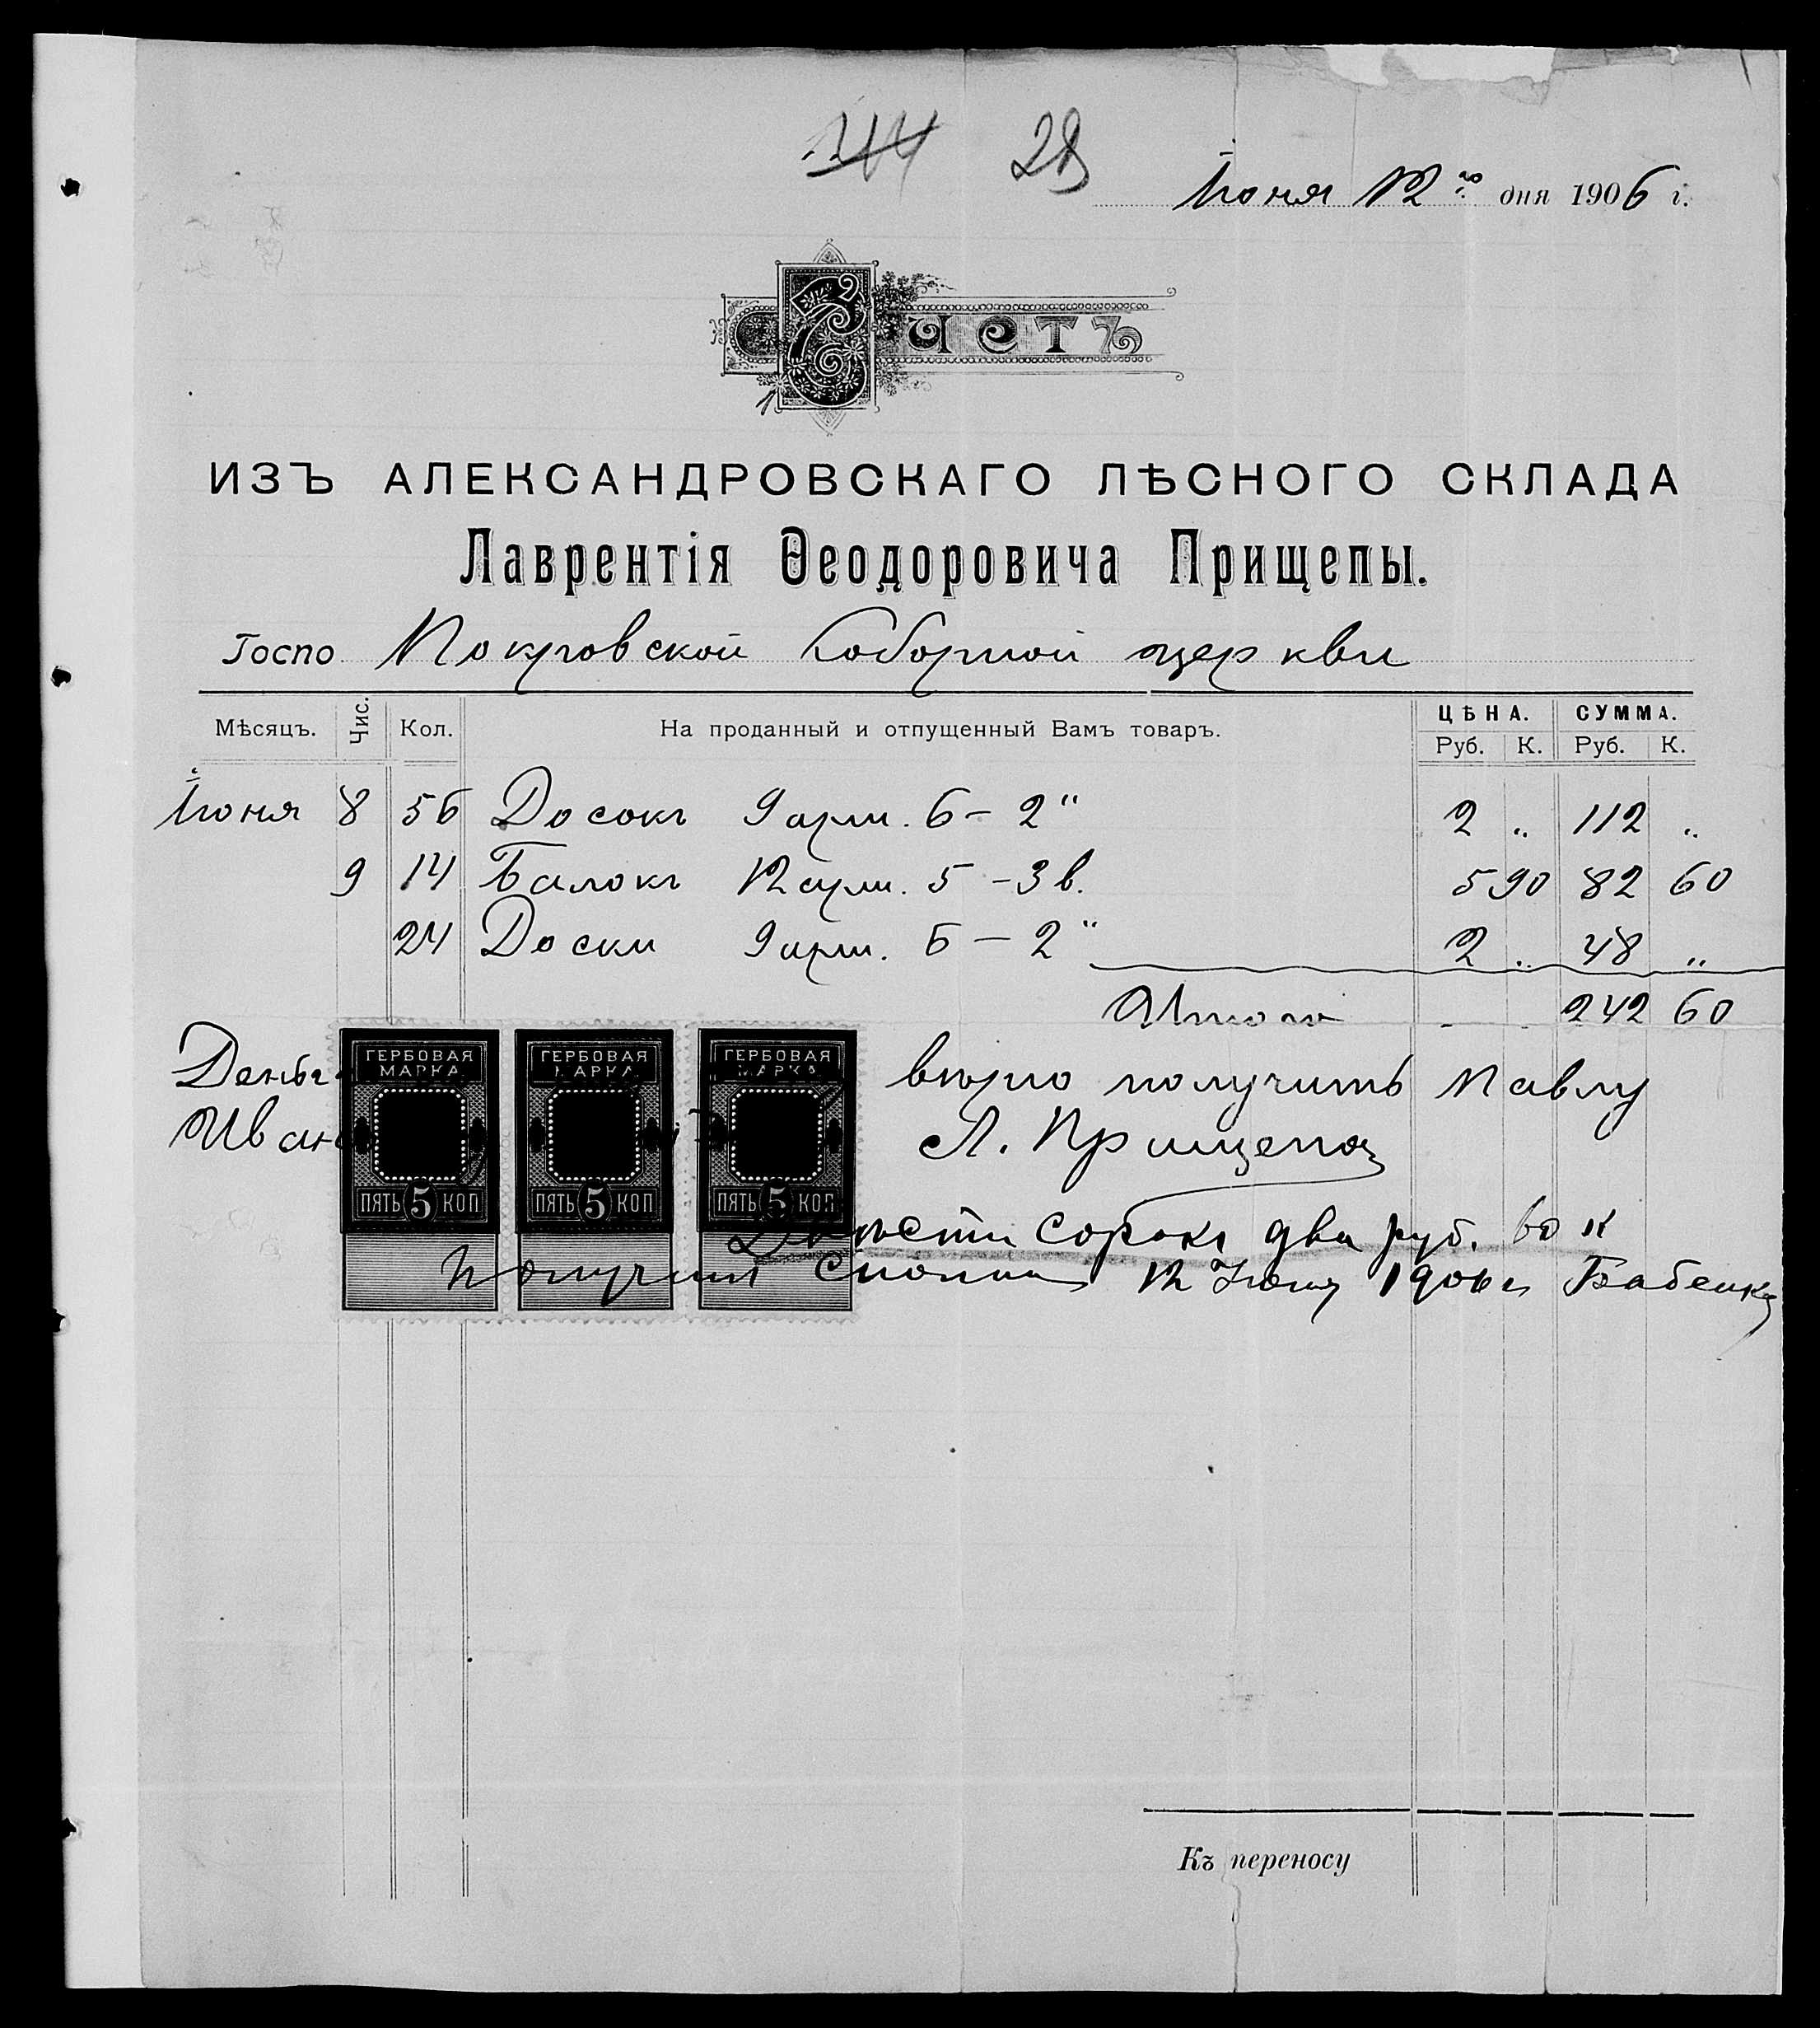 28
Іюня 12го дня 1906 г.
Счетъ
ИЗЪ АЛЕКСАНДРОВСКАГО ЛѢСНОГО СКЛАДА
Лаврентія Ѳеодоровича Прищепы.
Госпо Покровской Соборной церкви
Мѣсяцъ. Чис. Кол. На проданный и отпущенный Вамъ товаръ. ЦѢНА. СУММА.
Руб. К. Руб. К.
Іюня 8 56 Досокъ 9 арш. 6 – 2" 2 " 112 "
9 14 Балокъ 12 арш. 5 – 3 в. 5 90 82 60
24 Доски 9 арш. 6 – 2" 2 " 48 "
Итого 242 60
ГЕРБОВАЯ МАРКА ГЕРБОВАЯ МАРКА ГЕРБОВАЯ МАРКА
вѣрю получить Павлу
Л. Прищепа
ПЯТЬ 5 КОП ПЯТЬ 5 КОП ПЯТЬ 5 КОП
Двѣсти сорокъ два руб. 60 к
получил сполна 12 Июня 1906 г Бабенко
Къ переносу